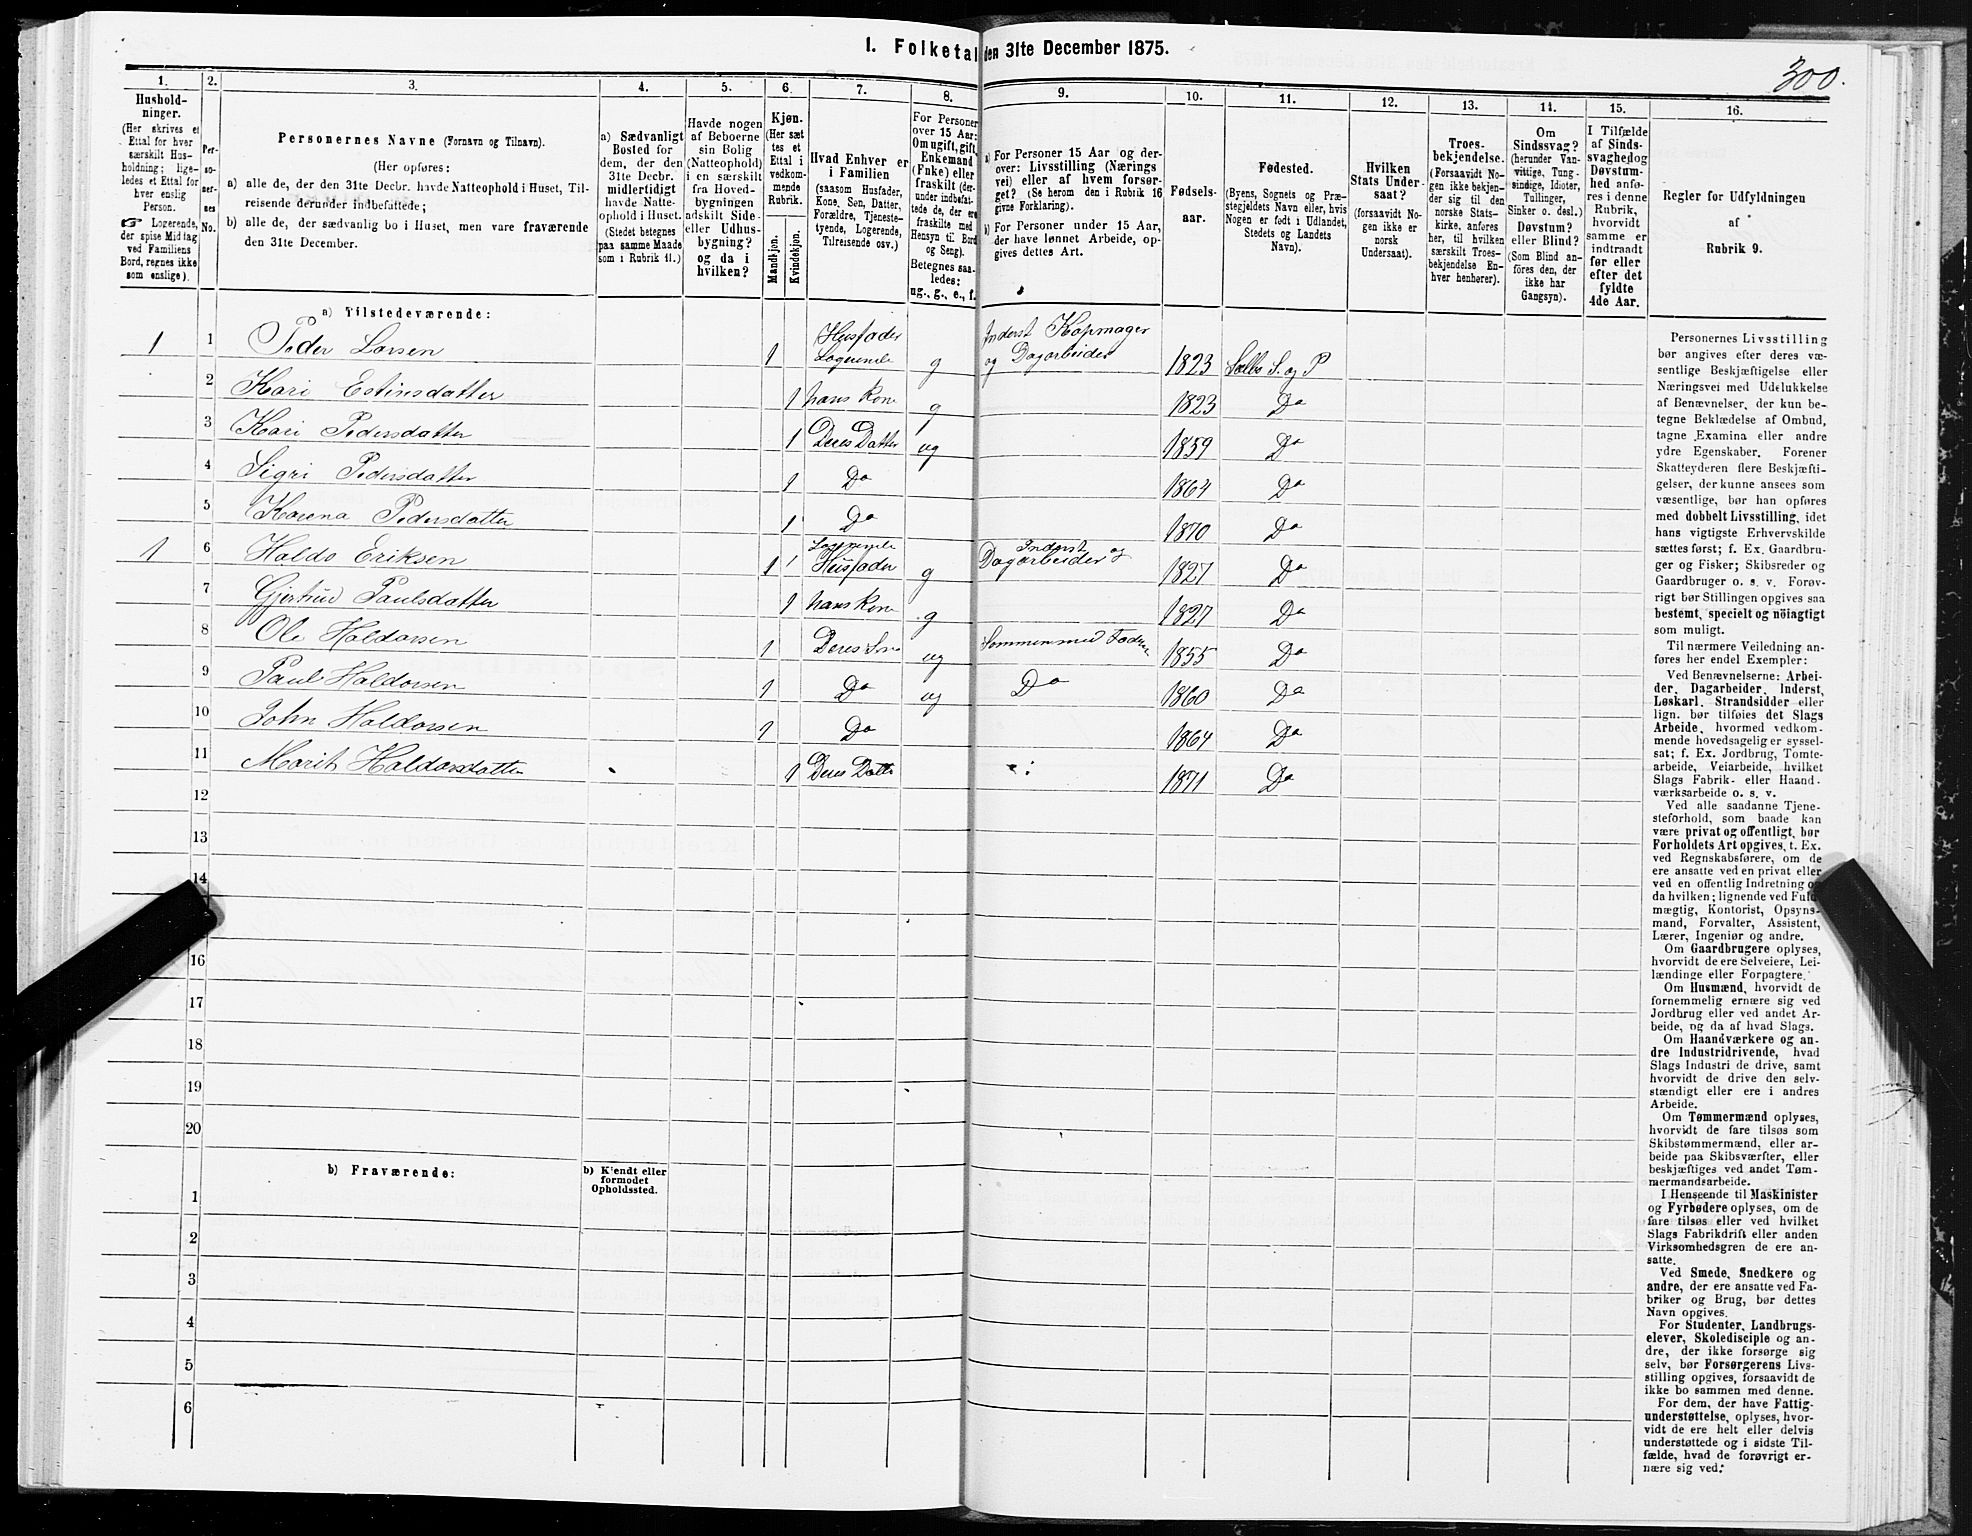 I. Folketal den 31te December 1875.
300.
1.
2.
3.
4.
5.
6
7.
8.
9.
10.
11.
12.
13.
14.
15.
16.
Hushold-
ninger.
(Her skrives et
Ettal for hver
særskilt Hus-
holdning; lige-
ledes et Ettal for
hver enslig
Person.
☞ Logerende,
der spise Middag
ved Familiens
Bord, regnes ikke
som enslige).
Per-
so-
ner-
nes
No.
Personernes Navne (Fornavn og Tilnavn).
(Her opføres:
a) alle de, der den 31te Decbr. havde Natteophold i Huset, Til-
reisende derunder indbefattede;
b) alle de, der sædvanlig bo i Huset, men vare fraværende
den 31te December.
a) Sædvanligt
Bosted for
dem, der den
31te Decbr.
midlertidigt
havde Natte-
ophold i Huset.
(Stedet betegnes
paa samme Maade
som i Rubrik 11.)
Havde nogen
af Beboerne
sin Bolig
(Natteophold)
i en særskilt
fra Hoved-
bygningen
adskilt Side-
eller Udhus-
bygning?
og da i
hvilken?
Kjøn.
(Her sæt
tes et
Ettal i
vedkom-
mende
Rubrik.
Mandkjøn.
Kvindekjøn.
Hvad Enhver er
i Familien
(saasom Husfader,
Kone, Søn, Datter,
Forældre, Tjeneste-
tyende, Logerende,
Tilreisende osv.)
For Personer
over 15 Aar:
Om ugift, gift,
Enkemand
(Enke) eller
fraskilt (der-
under indbefat-
tede de, der ere
fraskilte med
Hensyn til Bord
og Seng).
Betegnes saa-
ledes:
ug., g., e., f.
a) For Personer 15 Aar og der-
over: Livsstilling (Nærings
vei) eller af hvem forsør-
get? (Se herom den i Rubrik 16
givne Forklaring).
b) For Personer under 15 Aar,
der have lønnet Arbeide, op-
gives dettes Art.
Fødsels-
aar.
Fødested.
(Byens, Sognets og Præ-
stegjeldets Navn eller, hvis
Nogen er født i Udlandet,
Stedets og Landets
Navn).
Hvilken
Stats Under-
saat?
(forsaavidt No-
gen ikke er
norsk
Undersaat).
Troes-
bekjendelse.
(Forsaavidt No-
gen ikke bekjen-
der sig til den
norske Stats-
kirke, anføres
her, til hvilken
særskilt Troes-
bekjendelse En-
hver henhører).
Om
Sindssvag?
(herunder Van-
vittige, Tung-
sindige, Idioter,
Tullinger,
Sinker o. desl.)
Døvstum?
eller Blind?
(Som Blind an-
føres den, der
ikke har
Gangsyn).
I Tilfælde
af Sinds-
svaghed og
Døvstum-
hed anfø-
res i denne
Rubrik,
hvorvidt
samme er
indtraadt
før eller
efter det
fyldte
4de Aar.
Regler for Udfyldningen
af
Rubrik 9.
a) Tilstedeværende:
1 1 Peder Larsen 1 Husfader Logerende g Inderst Kopmager og Dagarbeider 1823 Selbo S. og P
2 Kari Estinsdatter 1 hans Kone g 1823 Do
3 Kari Pedersdatter 1 Deres Datter ug 1859 Do
4 Sigri Pedersdatter 1 Do 1864 Do
5 Karena Pedersdatter 1 Do 1870 Do
1 6 Haldo Eriksen 1 1 Logerende Husfader g Inderst og Dagarbeider 1827 Do
7 Gjertrud Paulsdatter 1 hans Kone g 1827 Do
8 Ole Haldorsen 1 Deres Søn ug Sammen med Fader 1855 Do
9 Paul Haldorsen 1 Do ug Do 1860 Do
10 John Haldorsen 1 Do 1864 Do
11 Marit Haldorsdatter 1 Deres Datter 1871 Do
12
13
14
16
17
18
19
20
b) Fraværende:
b) Kjendt eller
formodet
Opholdssted.
1
2
3
4
5
6
Personernes Livsstilling
bør angives efter deres væ-
sentlige Beskjæftigelse eller
Næringsvei med Udelukkelse
af Benævnelser, der kun be-
tegne Beklædelse af Ombud,
tagne Examina eller andre
ydre Egenskaber. Forener
Skatteyderen flere Beskjæfti-
gelser, der kunne ansees som
væsentlige, bør han opføres
med dobbelt Livsstilling, idet
hans vigtigste Erhvervskilde
sættes først; f. Ex. Gaardbru-
ger og Fisker; Skibsreder og
Gaardbruger o. s. v. Forøv-
rigt bør Stillingen opgives saa
bestemt, specielt og nöiagtigt
som muligt.
Til nærmere Veiledning an-
føres her endel Exempler:
Ved Benævnelserne: Arbei-
der, Dagarbeider, Inderst,
Løskarl, Strandsidder eller
lign. bør tilføies det Slags
Arbeide, hvormed vedkom-
mende hovedsagelig er syssel-
sat; f. Ex. Jordbrug, Tomte-
arbeide, Veiarbeide, hvilket
Slags Fabrik- eller Haand-
værksarbeide o. s. v.
Ved alle saadanne Tjene-
steforhold, som baade kan
være privat og offentligt, bør
Forholdets Art opgives, t. Ex.
ved Regnskabsførere, om de
ere ansatte ved en privat eller
ved en offentlig Indretning og
da hvilken; lignende ved Fuld-
mægtig, Kontorist, Opsyns-
mand, Forvalter, Assistent,
Lærer, Ingeniør og andre.
Om Gaardbrugere oplyses,
hvorvidt de ere Selveiere, Lei-
lændinge eller Forpagtere.
Om Husmænd, hvorvidt de
fornemmelig ernære sig ved
Jordbrug eller ved andet Ar-
beide, og da af hvad Slags.
Om Haandværkere og an-
dre Industridrivende, hvad
Slags Industri de drive, samt
hvorvidt de drive den selv-
stændigt eller ere i andres
Arbeide.
Om Tømmermænd oplyses,
hvorvidt de fare tilsøs som
Skibstømmermænd, eller ar-
beide paa Skibsværfter, eller
beskjæftiges ved andet Tøm-
mermandsarbeide.
I Henseende til Maskinister
og Fyrbødere oplyses, om de
fare tilsøs eller ved hvilket
Slags Fabrikdrift eller anden
Virksomhedsgren de ere an-
satte.
Ved Smede, Snedkere og
andre, der ere ansatte ved Fa-
briker og Brug, bør dettes
Navn opgives.
For Studenter, Landbrugs-
elever, Skoledisciple og an-
dre, der ikke forsørge sig
selv, bør Forsørgerens Livs-
stilling opgives, forsaavidt de
ikke bo sammen med denne.
For dem, der have Fattig-
understøttelse, oplyses, hvor-
vidt de ere helt eller delvis
understøttede og i sidste Til-
fælde, hvad de forøvrigt er-
nære sig ved.